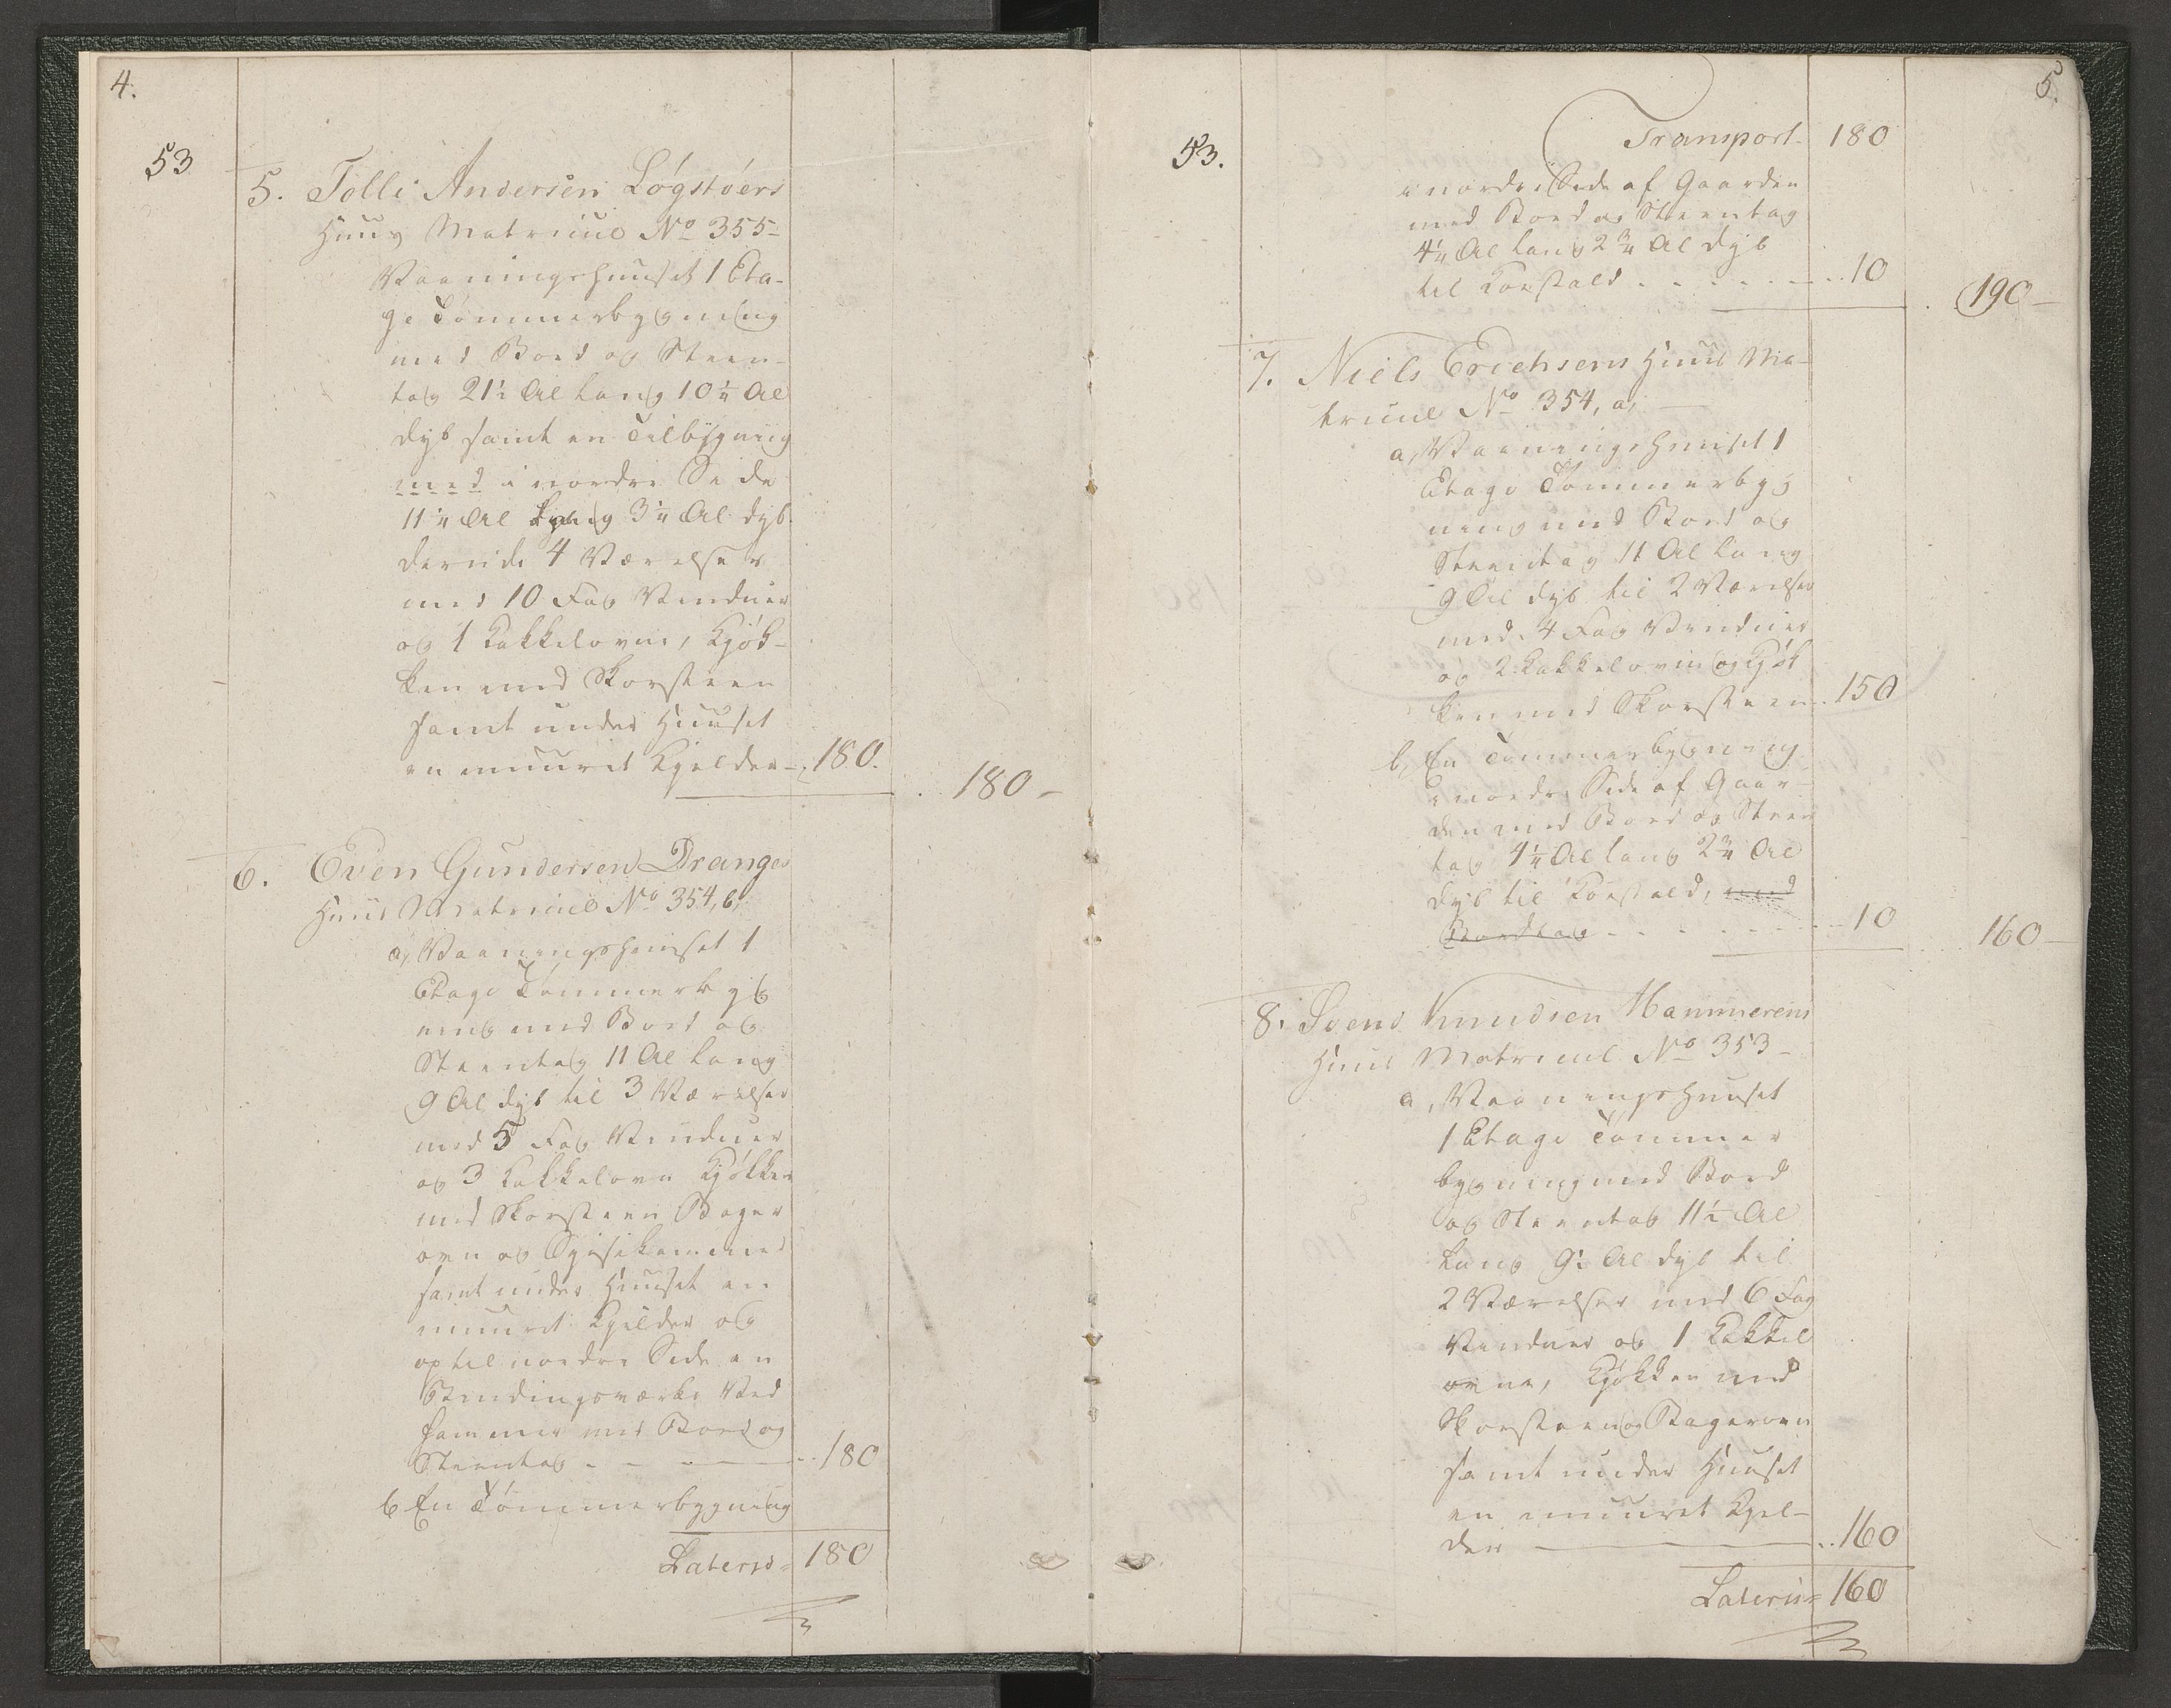 4.
53
5. Tolli Andersen Løgstøers
Huus Matricul No 355-
Vaaningshuuset 1 Eta-
ge Tømmerbygning
med Bord og Steen-
tag 21½ Al lang 10¼ Al
dyb samt en Tilbygning
med i nordre Side
11¼ Al lang 3¼ Al dyb.
derude 4 Værelser
med 10 Fag Vinduer
og 1 Kakkelovne, Kjøk-
ken med Skorsteen
samt under Huuset
en muuret Kjelder - 180.
180 -
6. Even Gundersen Dranges
Huus Matricul No 354, b,
a, Vaaningshuuset 1
Etage Tømmerbyg
ning med Bord og
Steentag 11 Al lang
9 Al dyb til 3 Værelser
med 5 Fag Vinduer
og 3 Kakkelovn Kjøkken
med Skorsteen Bager
ovn og Spisekammer
samt under Huuset en
muuret Kjelder og
optil nordre Side en
Bindingsværks Ved
kammer med Bord og
Steentag - - - 180
b En Tømmerbygning
Lateris = 180
5.
53.
Transport - 180
i nordre Side af Gaarden
med Bord og Steentag
4¼ Al lang 2¾ Al dyb
til Koestald . . . . . . 10
190 -
7. Niels Erichsens Huus Ma-
tricul No 354, a, -
a, Vaaningshuuset 1
Etage Tømmerbyg
ning med Bord og
Steentag 11 Al lang
9 Al dyb til 2 Værelser
med 4 Fag Vinduer
og 2 Kakkelovn og Kjøk
ken med Skorsteen . 150
b, En Tømmerbygning
i nordre Side af Gaar-
den med Bord og Steen
tag 4¼ Al lang 2¾ Al
dyb til Koestald, med
Bordtag - - - - - - 10
160 -
8. Svend Knudsen Hammerens
Huus Matricul No 353 -
a, Vaaningshuuset
1 Etage Tømmer
bygning med Bord
og Steentag 11½ Al
lang 9½ Al dyb til
2 Værelser med 6 Fag
Vinduer og 1 Kakkel
ovne, Kjøkken med
Skorsteen og Bagerovn
samt under Huuset
en muuret Kjel-
der - . . 160
Lateris = 160